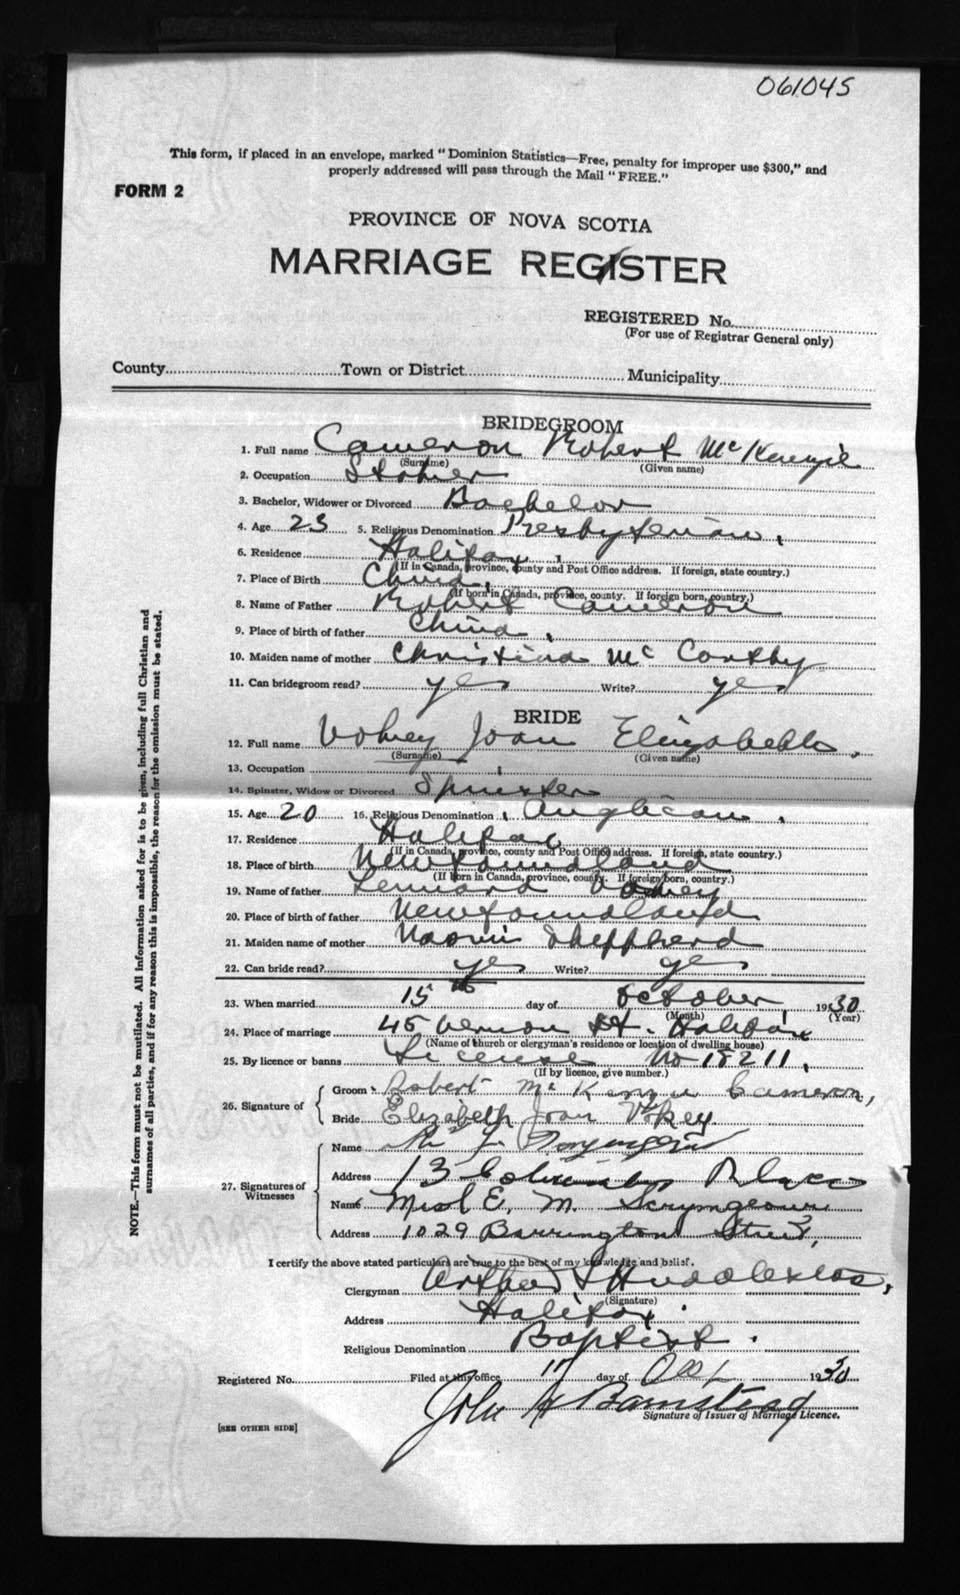 061045
This form, if placed in an envelope, marked "Dominion Statistics—Free, penalty for improper use $300," and
properly addressed will pass through the Mail "FREE."
FORM 2
PROVINCE OF NOVA SCOTIA
MARRIAGE REGISTER
REGISTERED No.
(For use of Registrar General only)
County Town or District Municipality
BRIDEGROOM
1. Full name Cameron Robert McKenzie
(Surname) (Given name)
2. Occupation Stoker
3. Bachelor, Widower or Divorced Bachelor
4. Age 23 5. Religious Denomination Presbyterian.
6. Residence Halifax
(If in Canada, province, county and Post Office address. If foreign, state country.)
7. Place of Birth China.
(If born in Canada, province, county. If foreign born, country.)
8. Name of Father Robert Cameron
9. Place of birth of father China.
10. Maiden name of mother Christina Mc Carthy
11. Can bridegroom read? yes Write? yes
BRIDE
12. Full name Vokey Joan Elizabeth.
(Surname) (Given name)
13. Occupation
14. Spinster, Widow or Divorced Spinster
15. Age 20 16. Religious Denomination Anglican.
17. Residence Halifax
(If in Canada, province, county and Post Office address. If foreign, state country.)
18. Place of birth Newfoundland
(If born in Canada, province, county. If foreign born, country.)
19. Name of father Lennard Vokey
20. Place of birth of father Newfoundland
21. Maiden name of mother Naomi Sheppherd
22. Can bride read? yes Write? yes
23. When married 15th day of October 1930
(Month) (Year)
24. Place of marriage 45 Vernon St. Halifax
(Name of church or clergyman's residence or location of dwelling house)
25. By licence or banns License No 18211.
(If by licence, give number.)
26. Signature of
Groom Robert McKenzie Cameron,
Bride Elizabeth Joan Vokey.
27. Signatures of Witnesses
Name Scrymgeour
Address 13 Columbus Place
Name E. M. Scrymgeour
Address 1029 Barrington Street,
I certify the above stated particulars are true to the best of my knowledge and belief.
Clergyman Arthur
(Signature)
Address Halifax.
Religious Denomination Baptist.
Registered No. Filed at this office 17 day of Oct 1930
John H Barnstead
Signature of Issuer of Marriage Licence.
[SEE OTHER SIDE]
NOTE.—This form must not be mutilated. All information asked for is to be given, including full Christian and
surnames of all parties, and if for any reason this is impossible, the reason for the omission must be stated.